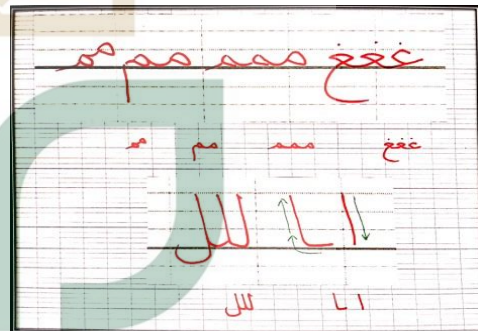 غغغ ممم مم مم
غغغ ممم مم مم
ا ا للل
ا ا للل